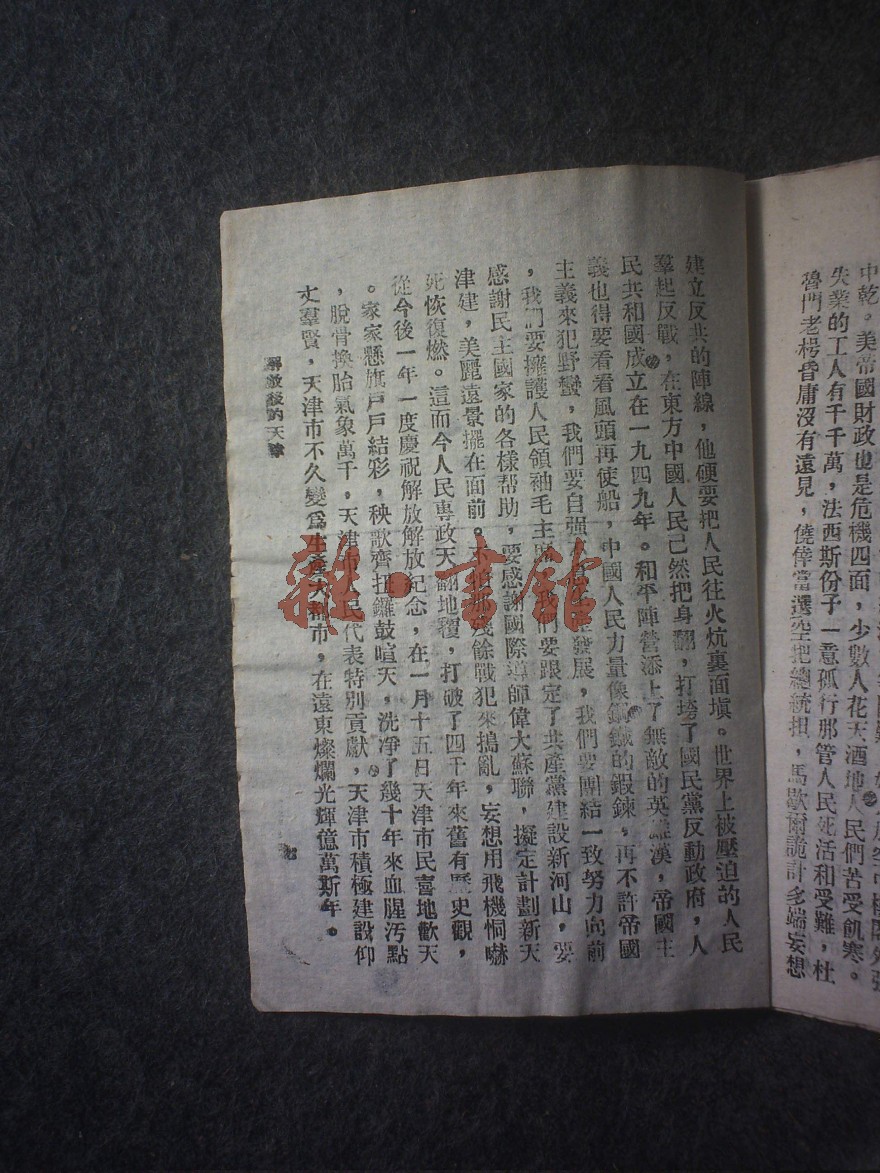 中乾。美帝國財政也是危機四面，少數人花天酒地人民們苦受飢寒。
失業的工人有千千萬，法西斯份子一意孤行那管人民死活和受難，杜
魯門老朽昏庸沒有遠見，僥倖當選空把總統担，馬歇爾詭計多端妄想
建立反共的陣線，他硬要把人民往火炕裏面塡。世界上被壓迫的人民
羣起反戰，在東方中國人民已然把身翻，打垮了國民黨反動政府，人
民共和國成立在一九四九年。和平陣營添上了無敵的英雄漢，帝國主
義也得要看看風頭再使船，中國人民力量像鋼鐵的鍜鍊，再不許帝國
主義來犯野蠻，我們要自强發展，我們要團結一致努力向前
，我們要擁護人民領袖毛主們要跟定了共產黨建設新河山，要
感謝民主國家的各樣帮助，要感謝國際導師偉大蘇聯，擬定計劃新天
津建，美麗遠景擺在面前。不怕那殘餘戰犯來搗亂，妄想用飛機恫嚇
死恢復燃。這而今人民專政天翻地覆，打破了四千年來舊有歷史觀，
從今後一年一度慶祝解放解放紀念，在一月十五日天津市民喜地歡天
。家家懸旗戶戶結彩，秧歌齊扭鑼鼓喧天，洗凈了幾十年來血腥汚點
，脫骨換胎氣象萬千，天津市人民代表特別貢獻，天津市積極建設仰
丈羣賢，天津市不久變爲生產大都市，在遠東燦爛光輝億萬斯年。
解放後的天津
七
雜·書館